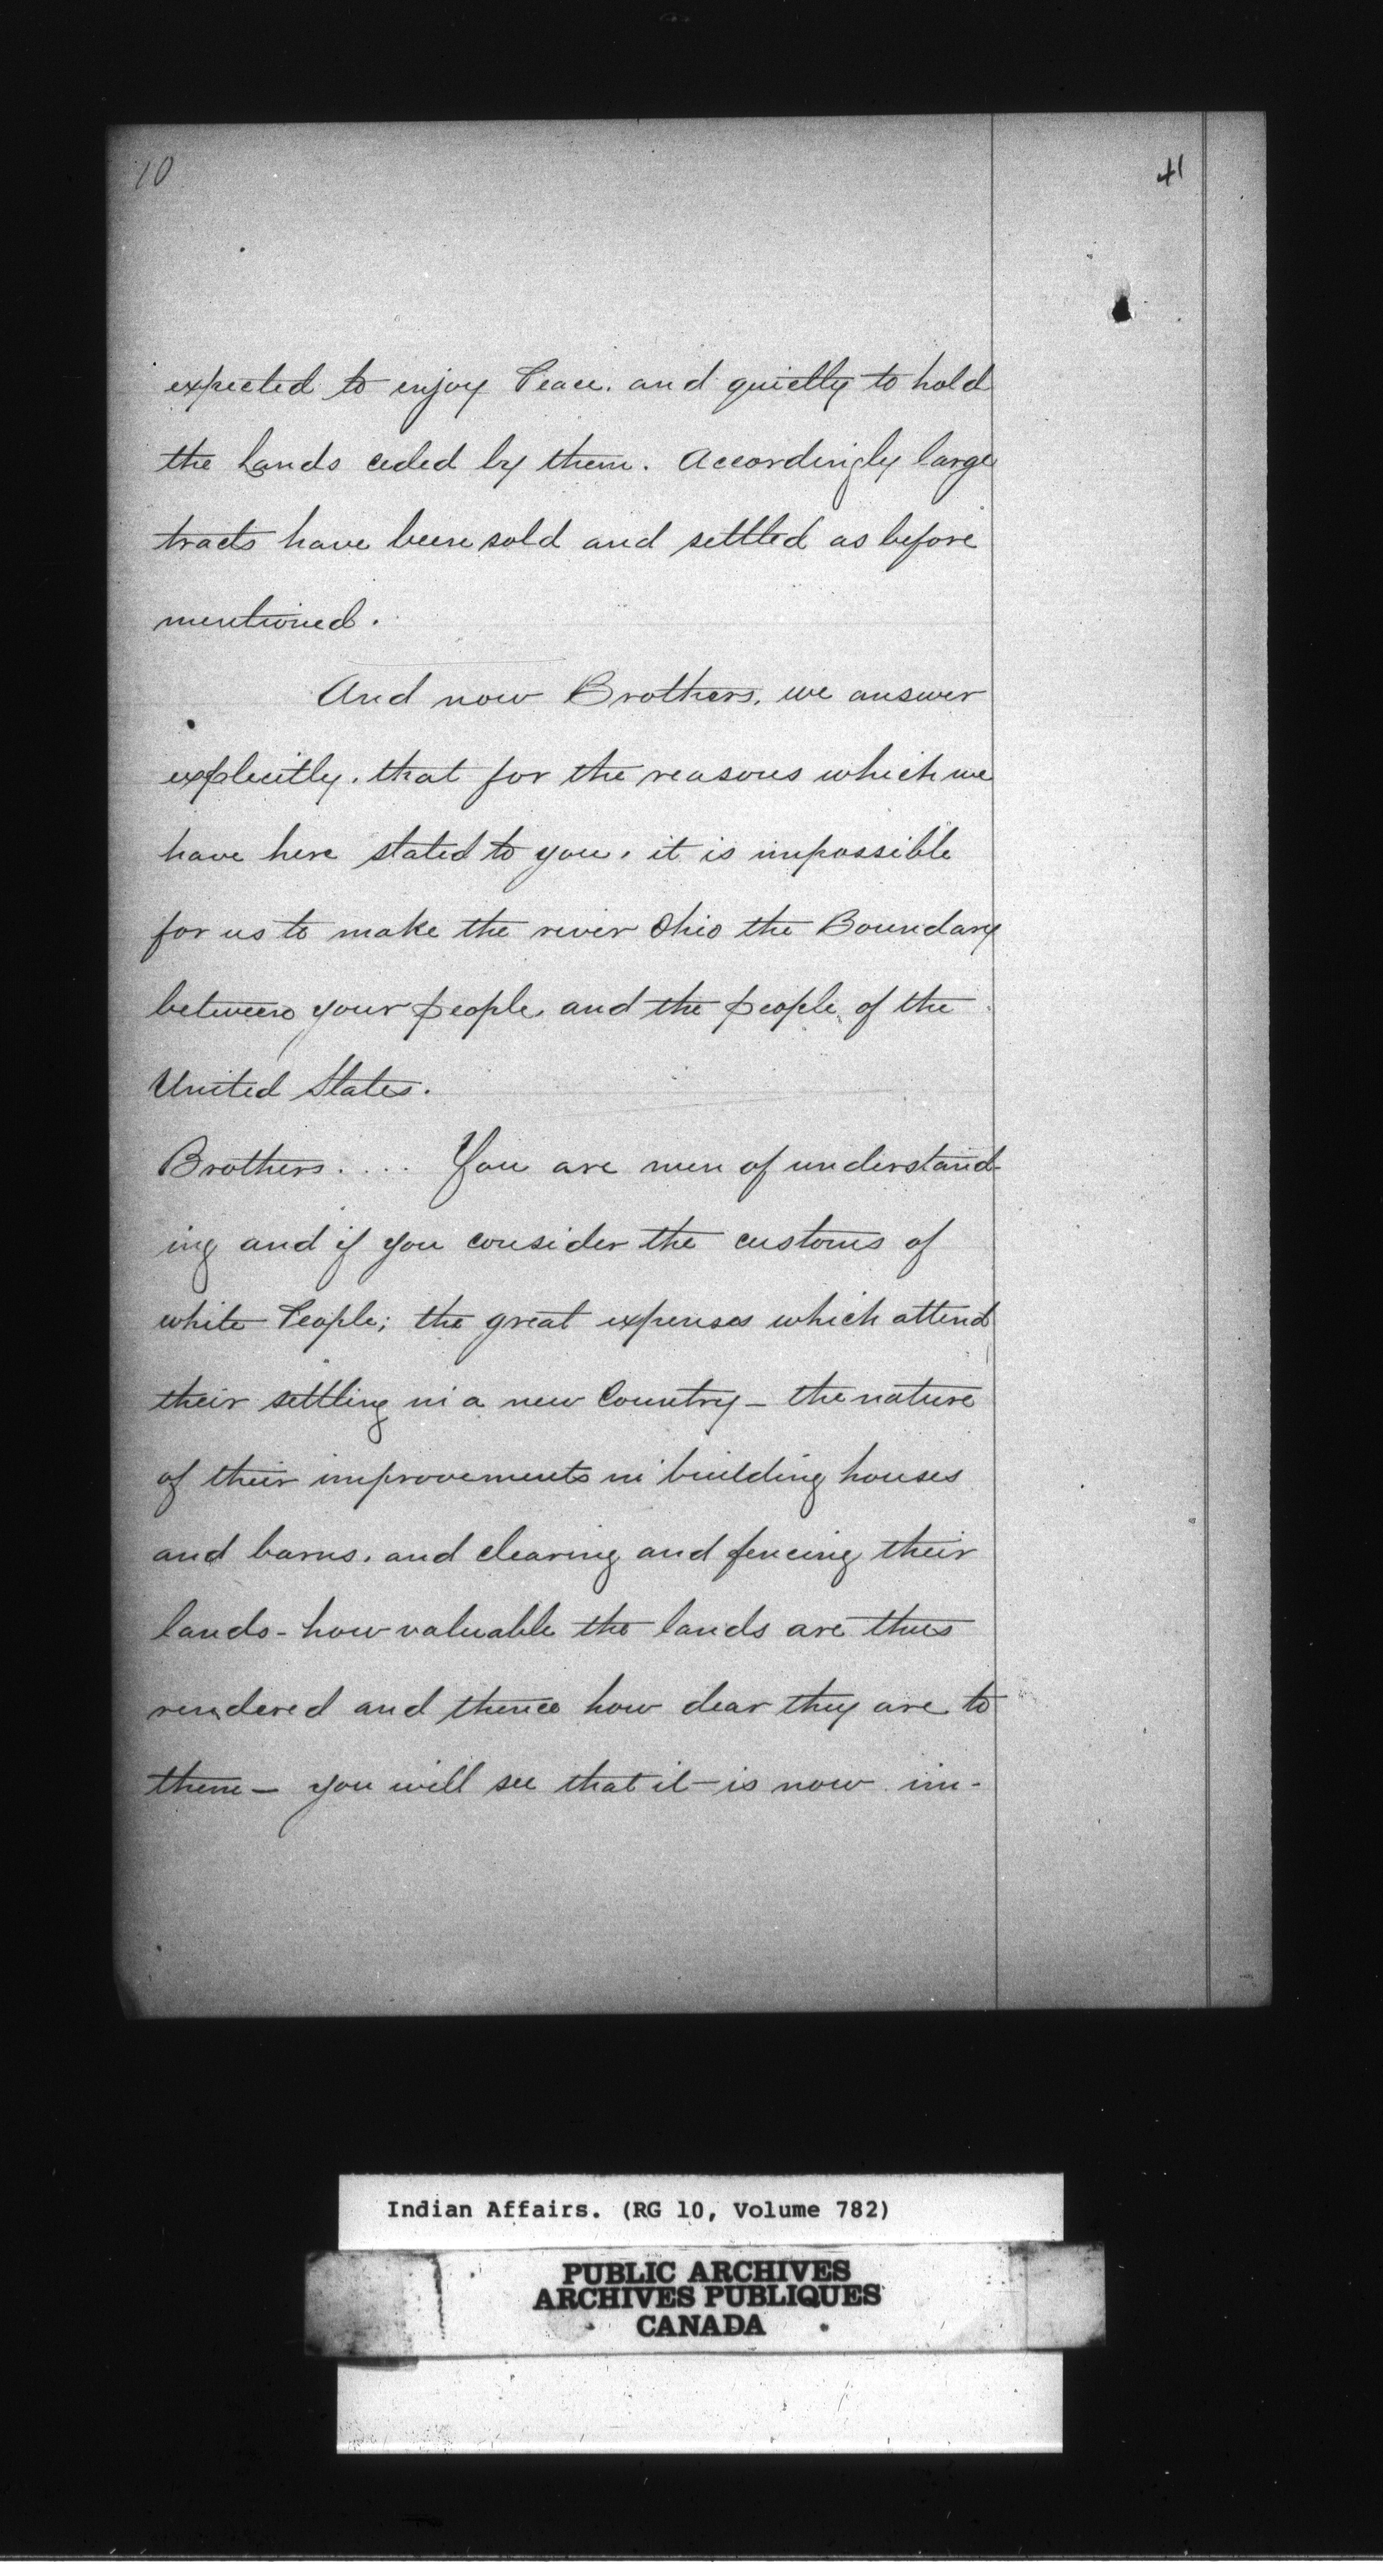 10
41
expected to enjoy Peace. and quietly to hold
the Lands ceded by them. Accordingly large
tracts have been sold and settled as before
mentioned.
And now Brothers, we answer
explicitly. that for the reasons which we
have here stated to you, it is impossible
for us to make the river Ohio the Boundary
between your people and the people of the
United States.
Brothers.... You are men of understand-
ing and if you consider the customs of
white People; the great expenses which attend
their settling in a new Country - the nature
of their improvements in building houses
and barns. and clearing and fencing their
lands - how valuable the lands are thus
rendered and thence how dear they are to
them - you will see that it is now im-
Indian Affairs. (RG 10, Volume 782)
PUBLIC ARCHIVES
ARCHIVES PUBLIQUES
CANADA